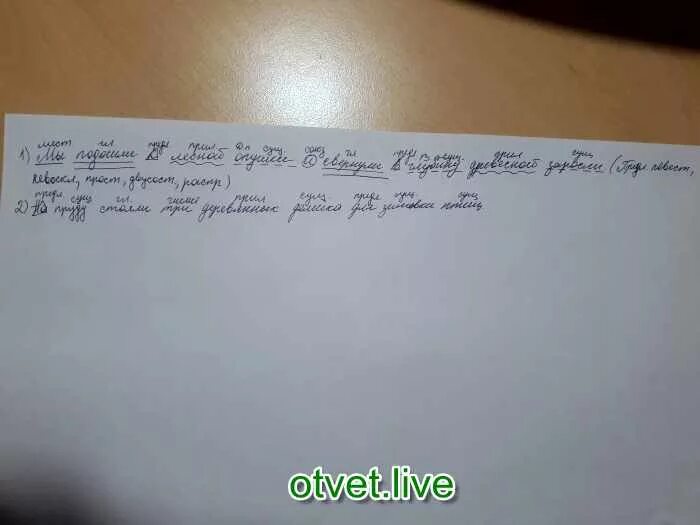 мест гл предл прил Д.п сущ. союз гл предл В.п сущ. прил сущ
1) Мы подошли к лесной опушке и свернули в глубину древесной заросли (Предл. повест,
невоскл, прост, двусост, распр)
предл сущ. гл. числит прил сущ. предл сущ. сущ
2) На пруду стояли три деревянных домика для зимовки птиц
otvet.live